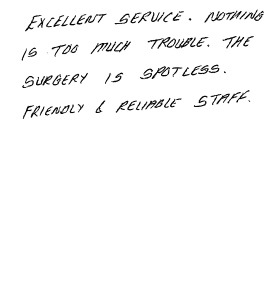 EXCELLENT SERVICE. NOTHING
IS TOO MUCH TROUBLE. THE
SURGERY IS SPOTLESS.
FRIENDLY & RELIABLE STAFF.